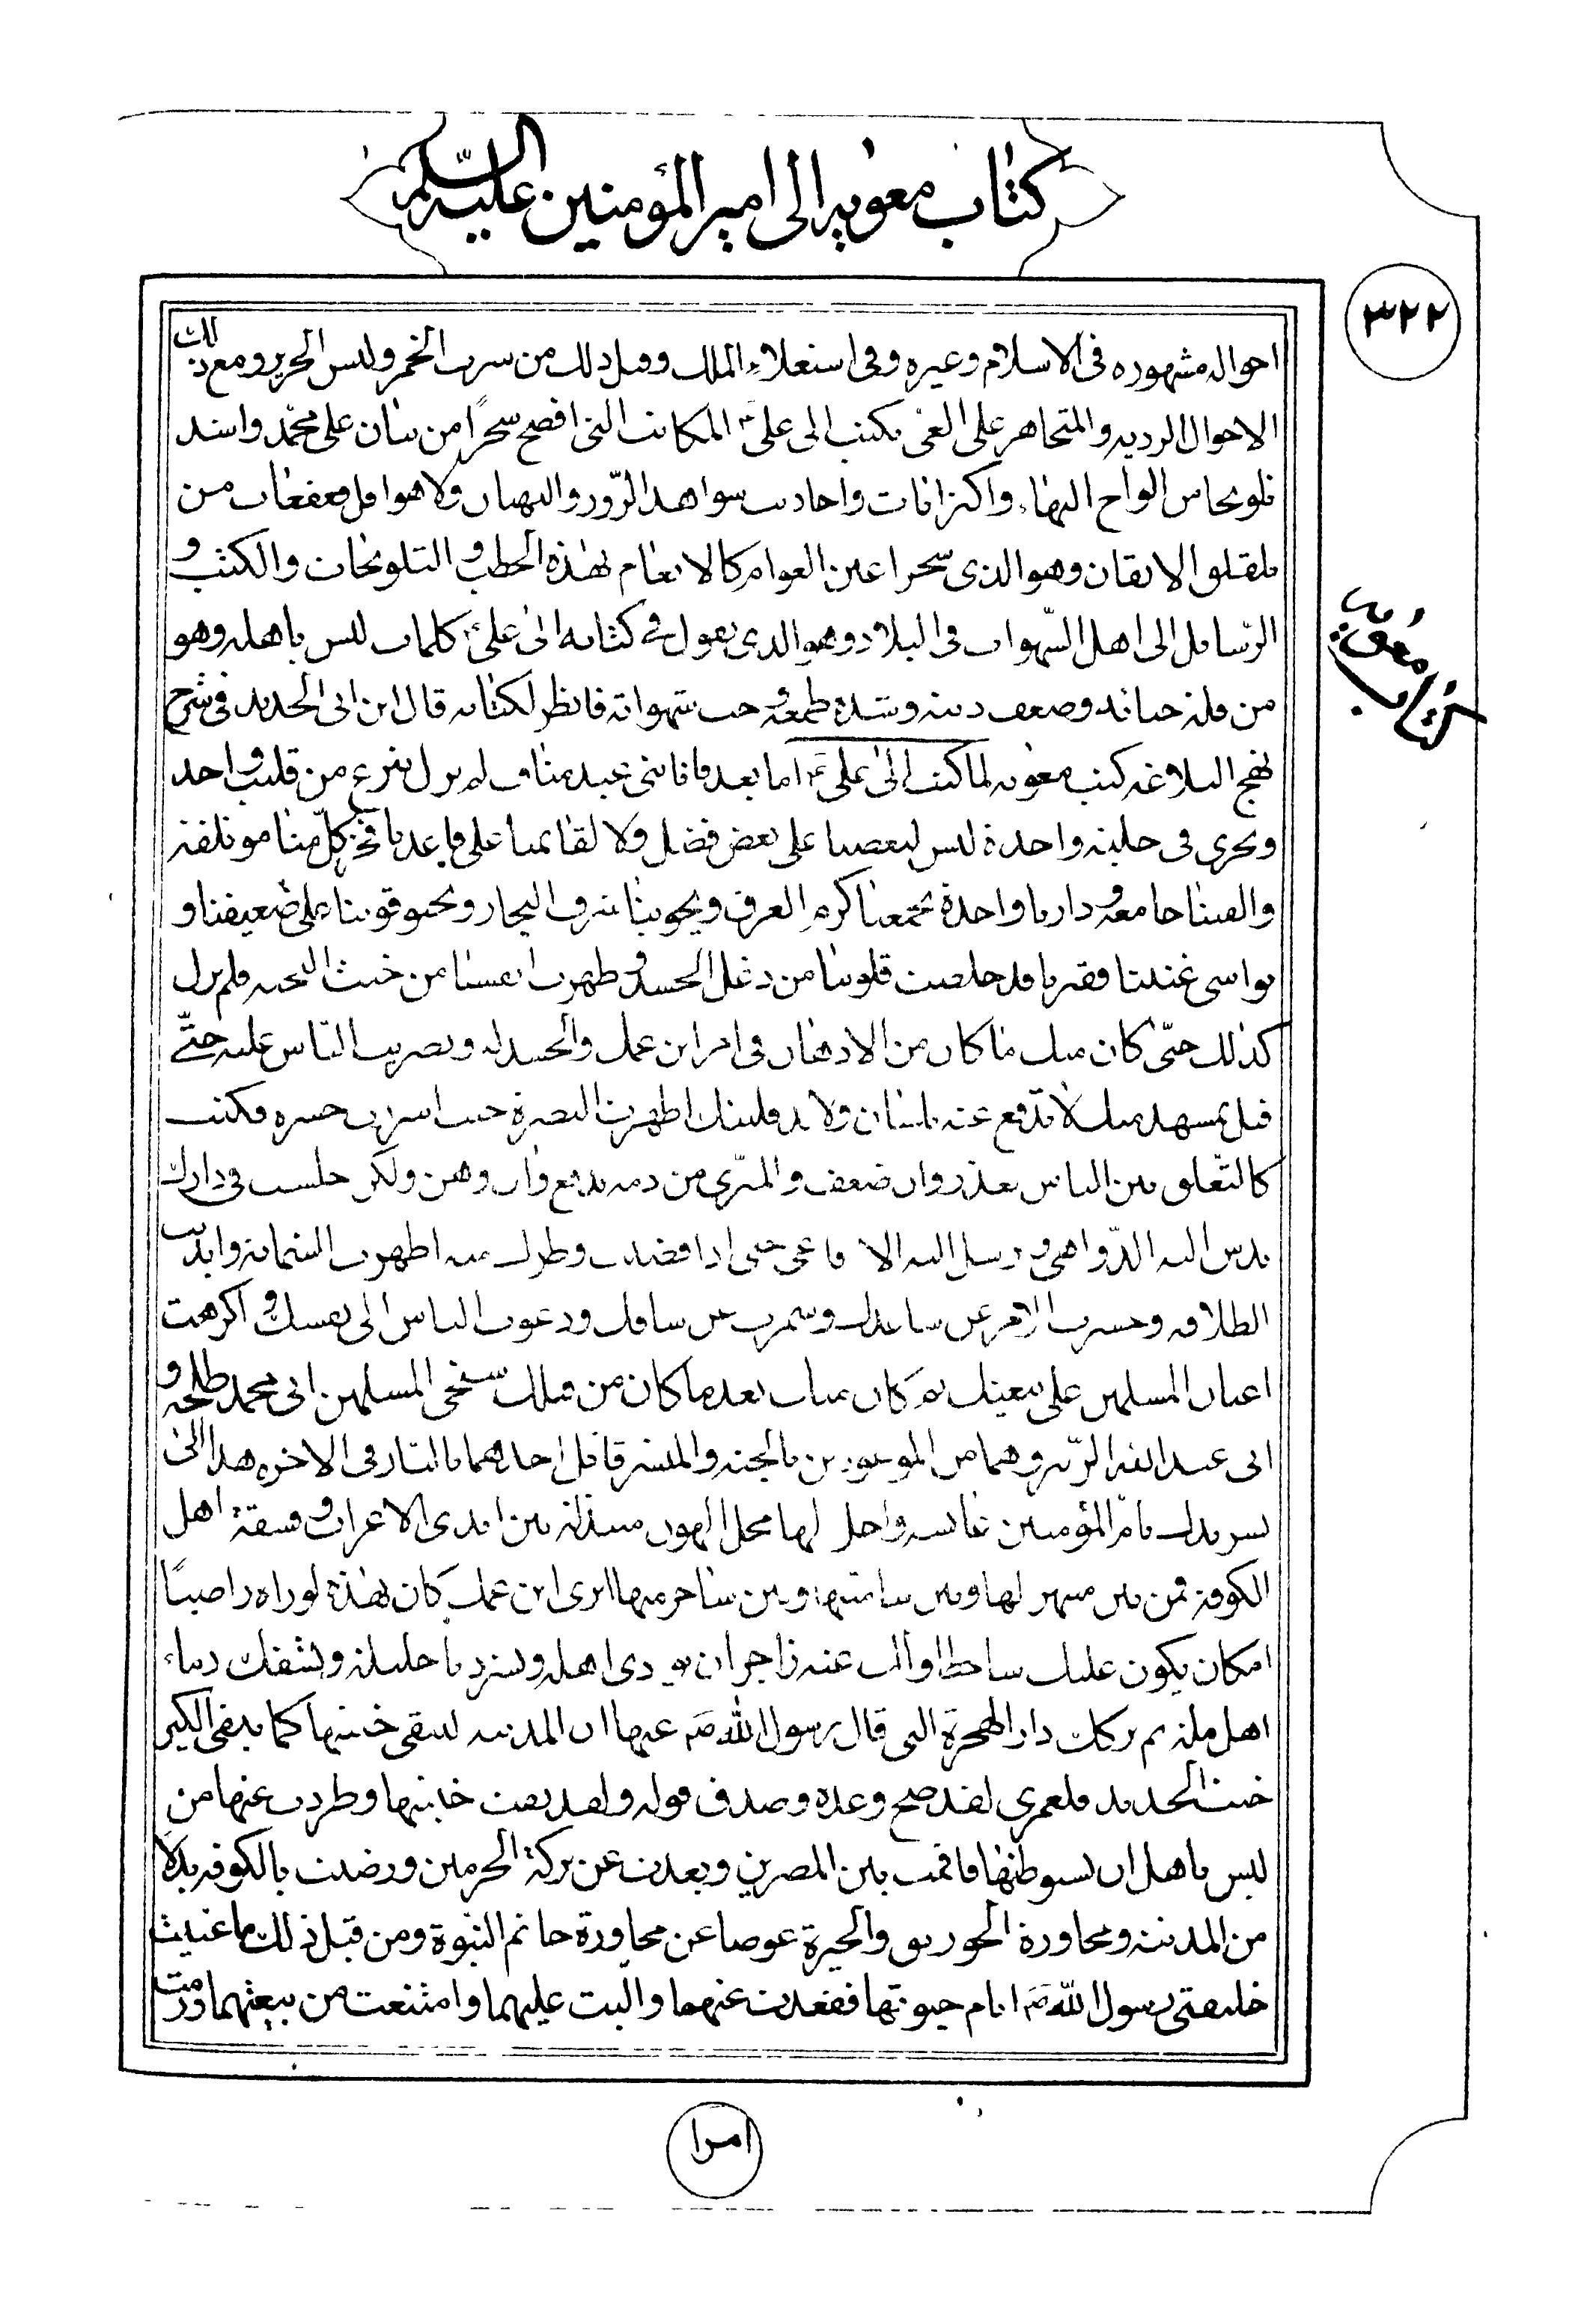 كتاب معويه الى امير المؤمنين عليه السلم
٣٢٢
احواله مشهوره فى الاسلام وغيره وفى استعلاء الملك وقبل ذلك من شرب الخمر ولبس الحرير ومع ذلك
الاحوال الرديه والمتجاهر على الغى يكتب الى على ع المكاتب التى افصح سحرًا من بيان على محمد واشد
تلويحا من الواح البهاء واكثر افات واحاديث شواهد الزور والبهتان ولا هو اقل قعقعات من
الايقان وهو الذى سحر اعين العوام كالانعام بهذه الخطب و التلويحات والكتب و
الرسائل الى اهل الشهوات فى البلاد وهو الذى يقول فى كتابه الى على ع كلمات ليس باهله وهو
من قلة حيائه وضعف دينه وشدة طمعه و حب شهواته فانظر لكتابه قال ابن ابى الحديد فى شرح
نهج البلاغه كتب معويه لما كتب الى على ع اما بعد فاننى عبد مناف لم يزل ينزع من قليب واحد
ويجرى فى حلبة واحدة ليس لبعضنا على بعض فضل ولا لقائمنا على قاعدنا فخر كلّمنا مؤتلفة
والفتنا جامعه و دارنا واحدة يجمعنا كرم العرق ويحوينا شرف النجار ويحنو قوينا على ضعيفنا و
يواسى غنينا فقيرنا قد خلصت قلوبنا من دغل الحسد و طهرت انفسنا من خبث النحيه فلم يزل
كذلك حتى كان منك ما كان من الادهان فى امر ابن عمك والحسد له وتضريب الناس عليه حتى
قتل بمشهد منك لا تدفع عنه بلسان ولا يد فليتك اظهرت النصرة حيث اسررت خبره فكنت
كالتعلق بين الناس بعذر وان ضعف والمتبرى من دمه بدفع وان وهن ولكن جلست فى دارك
تدس اليه الدواهى و ترسل اليه الافاعى حتى اذا قضيت وطرك منه اظهرت الشماتة وابديت
الطلاقه وحسرت للامر عن ساعدك وشمرت عن ساقك ودعوت الناس الى نفسك و اكرهت
اعيان المسلمين على بيعتك ثم كان منك بعد ما كان من قتلك شيخى المسلمين ابى محمد طلحه و
ابى عبد الله الزبير وهما من الموعودين بالجنه والمبشر قاتل احدهما بالنار فى الاخره هذا الى
تشريدك بام المؤمنين عايشه واحلالها محل الهون مبتذلة بين ايدى الاعراب و فسقة اهل
الكوفة فمن بين مشهر لها وبين شامت بها وبين ساخر منها اترى ابن عمك كان بهذه لو راه راضيًا
ام كان يكون عليك ساخطا ولك عنه زاجرا ان توذى اهله وتشرد باحليلته وتسفك دماء
اهل ملته ثم تركك دار الهجرة التى قال رسول الله ص عنها ان المدينه لتنفى خبثها كما ينفى الكير
خبث الحديد فلعمرى لقد صح وعده وصدق قوله ولقد نفت خبثها وطردت عنها من
ليس باهل ان يستوطنها فاقمت بين المصرين وبعدت عن بركة الحرمين ورضيت بالكوفه بدلًا
من المدينة ومجاورة الخورنق والحيرة عوضا عن مجاورة خاتم النبوة ومن قبل ذلك ما عيبت
خليفتى رسول الله ص ايام حيوتهما فقعدت عنهما والبت عليهما وامتنعت من بيعتهما ورمت
كتاب معويه
امرا